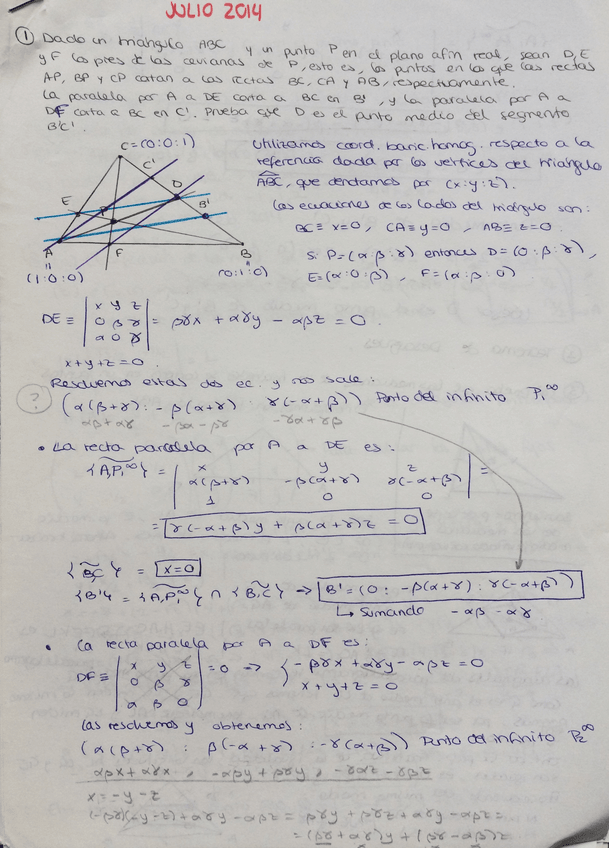 JULIO 2014
① Dado un triángulo ABC y un punto P en el plano afín real, sean D, E
y F los pies de las cevianas de P, esto es, los puntos en los que las rectas
AP, BP y CP cortan a las rectas BC, CA y AB, respectivamente.
La paralela por A a DE corta a BC en B', y la paralela por A a
DF corta a BC en C'. Prueba que D es el punto medio del segmento
B'C'.
C=(0:0:1)
C'
D
E
P
B'
A
F
B
(1:0:0)
(0:1:0)
Utilizamos coord. baric. homog. respecto a la
referencia dada por los vértices del triángulo
ABC, que denotamos por (x:y:z).
Las ecuaciones de los lados del triángulo son:
BC≡x=0, CA≡y=0, AB≡z=0.
Si P=(α:β:γ) entonces D=(0:β:γ),
E=(α:0:β), F=(α:β:0)
DE ≡ | x y z | = βγx + αγy - αβz = 0.
0 β γ
α 0 γ
x+y+z=0.
Resolvemos estas dos ec. y nos sale:
? (α(β+γ) : -β(α+γ) : γ(-α+β)) Punto del infinito P₁^∞
αβ+αγ -βα-βγ -γα+γβ
• La recta paralela por A a DE es:
{A,P₁^∞} = | x y z | =
α(β+γ) -β(α+γ) γ(-α+β)
1 0 0
= γ(-α+β)y + β(α+γ)z = 0
{B,C} = x=0
{B'} = {A,P₁^∞} ∩ {B,C} → B'=(0: -β(α+γ) : γ(-α+β))
↳ Sumando -αβ-αγ
• La recta paralela por A a DF es:
DF≡ | x y z | = 0 → { -βγx + αγy - αβz = 0
0 β γ
α β 0
x+y+z=0
Las resolvemos y obtenemos:
(α(β+γ) : β(-α+γ) : -γ(α+β)) Punto del infinito P₂^∞
αβx+αγx, -αβy+βγy, -γαz-γβz
x=-y-z
(-βγ)(-y-z)+αγy-αβz= βγy+βγz+αγy-αβz=
=(βγ+αγ)y+(βγ-αβ)z